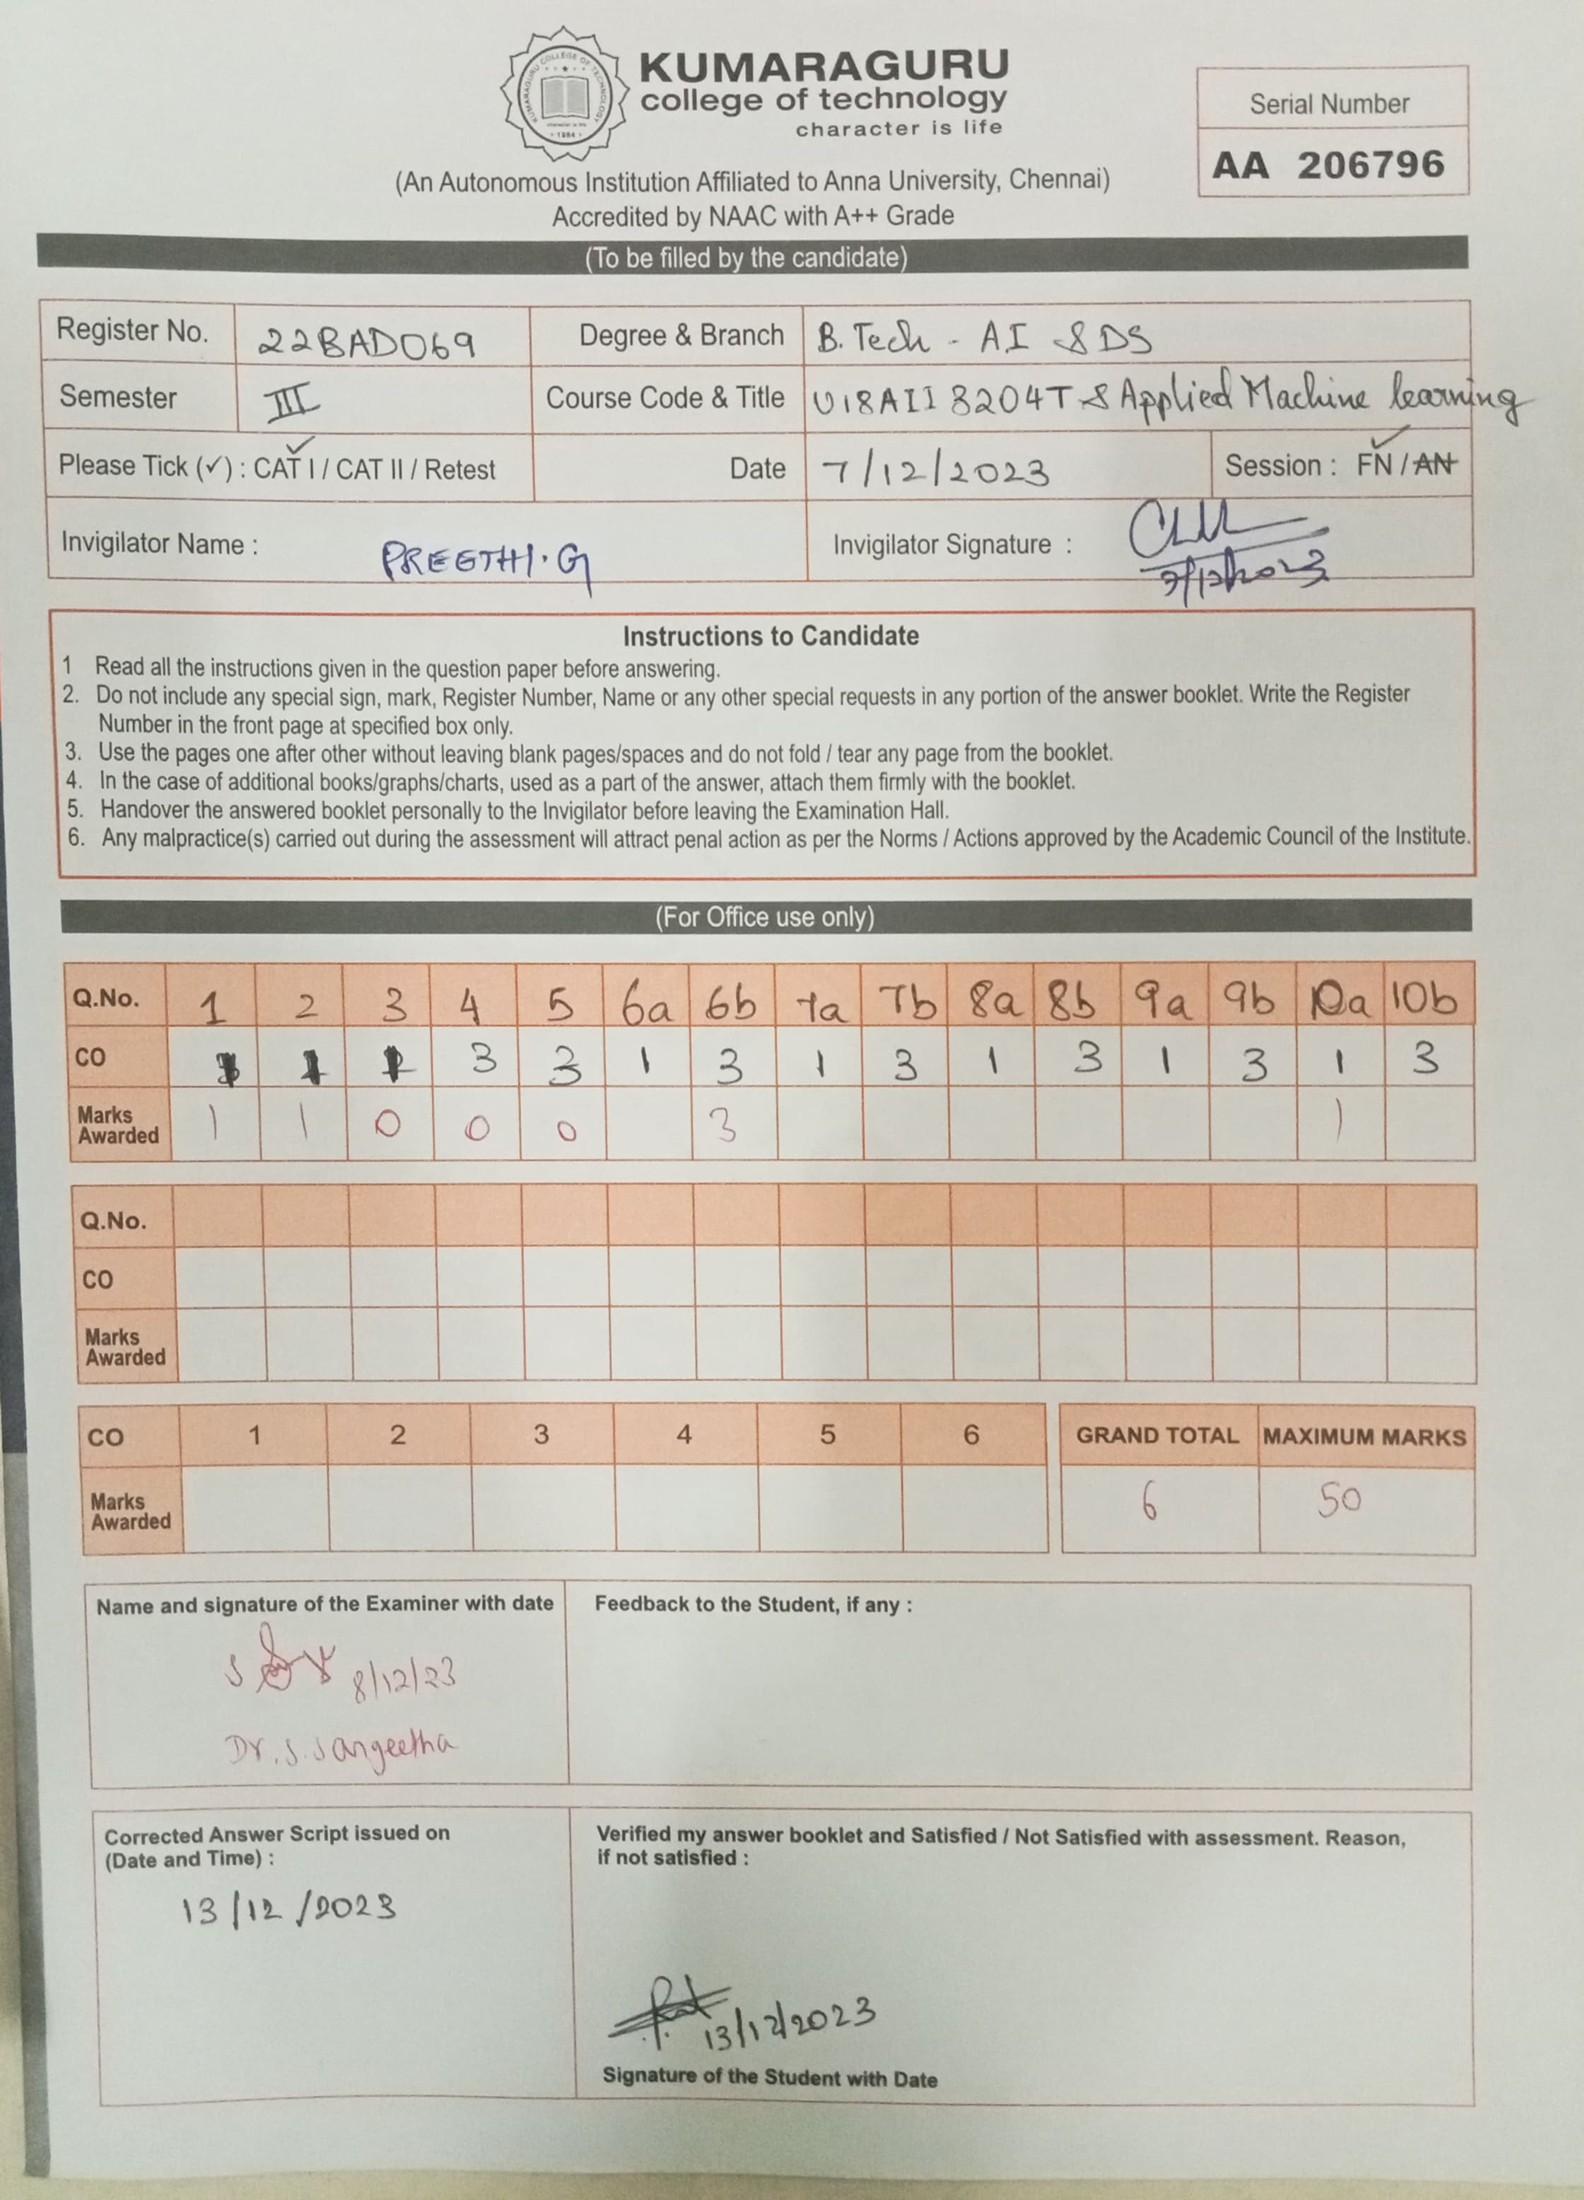 KUMARAGURU COLLEGE OF TECHNOLOGY
1984
KUMARAGURU
college of technology
character is life
(An Autonomous Institution Affiliated to Anna University, Chennai)
Accredited by NAAC with A++ Grade
Serial Number
AA 206796
(To be filled by the candidate)
Register No. 22BAD069 Degree & Branch B. Tech - AI & DS
Semester III Course Code & Title U18AII3204T & Applied Machine learning
Please Tick (✓) : CAT I / CAT II / Retest Date 7/12/2023 Session : FN / AN
Invigilator Name : PREETHI. G Invigilator Signature :
Instructions to Candidate
1 Read all the instructions given in the question paper before answering.
2. Do not include any special sign, mark, Register Number, Name or any other special requests in any portion of the answer booklet. Write the Register
Number in the front page at specified box only.
3. Use the pages one after other without leaving blank pages/spaces and do not fold / tear any page from the booklet.
4. In the case of additional books/graphs/charts, used as a part of the answer, attach them firmly with the booklet.
5. Handover the answered booklet personally to the Invigilator before leaving the Examination Hall.
6. Any malpractice(s) carried out during the assessment will attract penal action as per the Norms / Actions approved by the Academic Council of the Institute.
(For Office use only)
Q.No. 1 2 3 4 5 6a 6b 7a 7b 8a 8b 9a 9b 10a 10b
CO 1 1 1 3 3 1 3 1 3 1 3 1 3 1 3
Marks Awarded 1 1 0 0 0 3 1
Q.No.
CO
Marks
Awarded
CO 1 2 3 4 5 6 GRAND TOTAL MAXIMUM MARKS
Marks Awarded 6 50
Name and signature of the Examiner with date
8/12/23
Dr. S. Sangeetha
Feedback to the Student, if any :
Corrected Answer Script issued on
(Date and Time) :
13/12/2023
Verified my answer booklet and Satisfied / Not Satisfied with assessment. Reason,
if not satisfied :
13/12/2023
Signature of the Student with Date